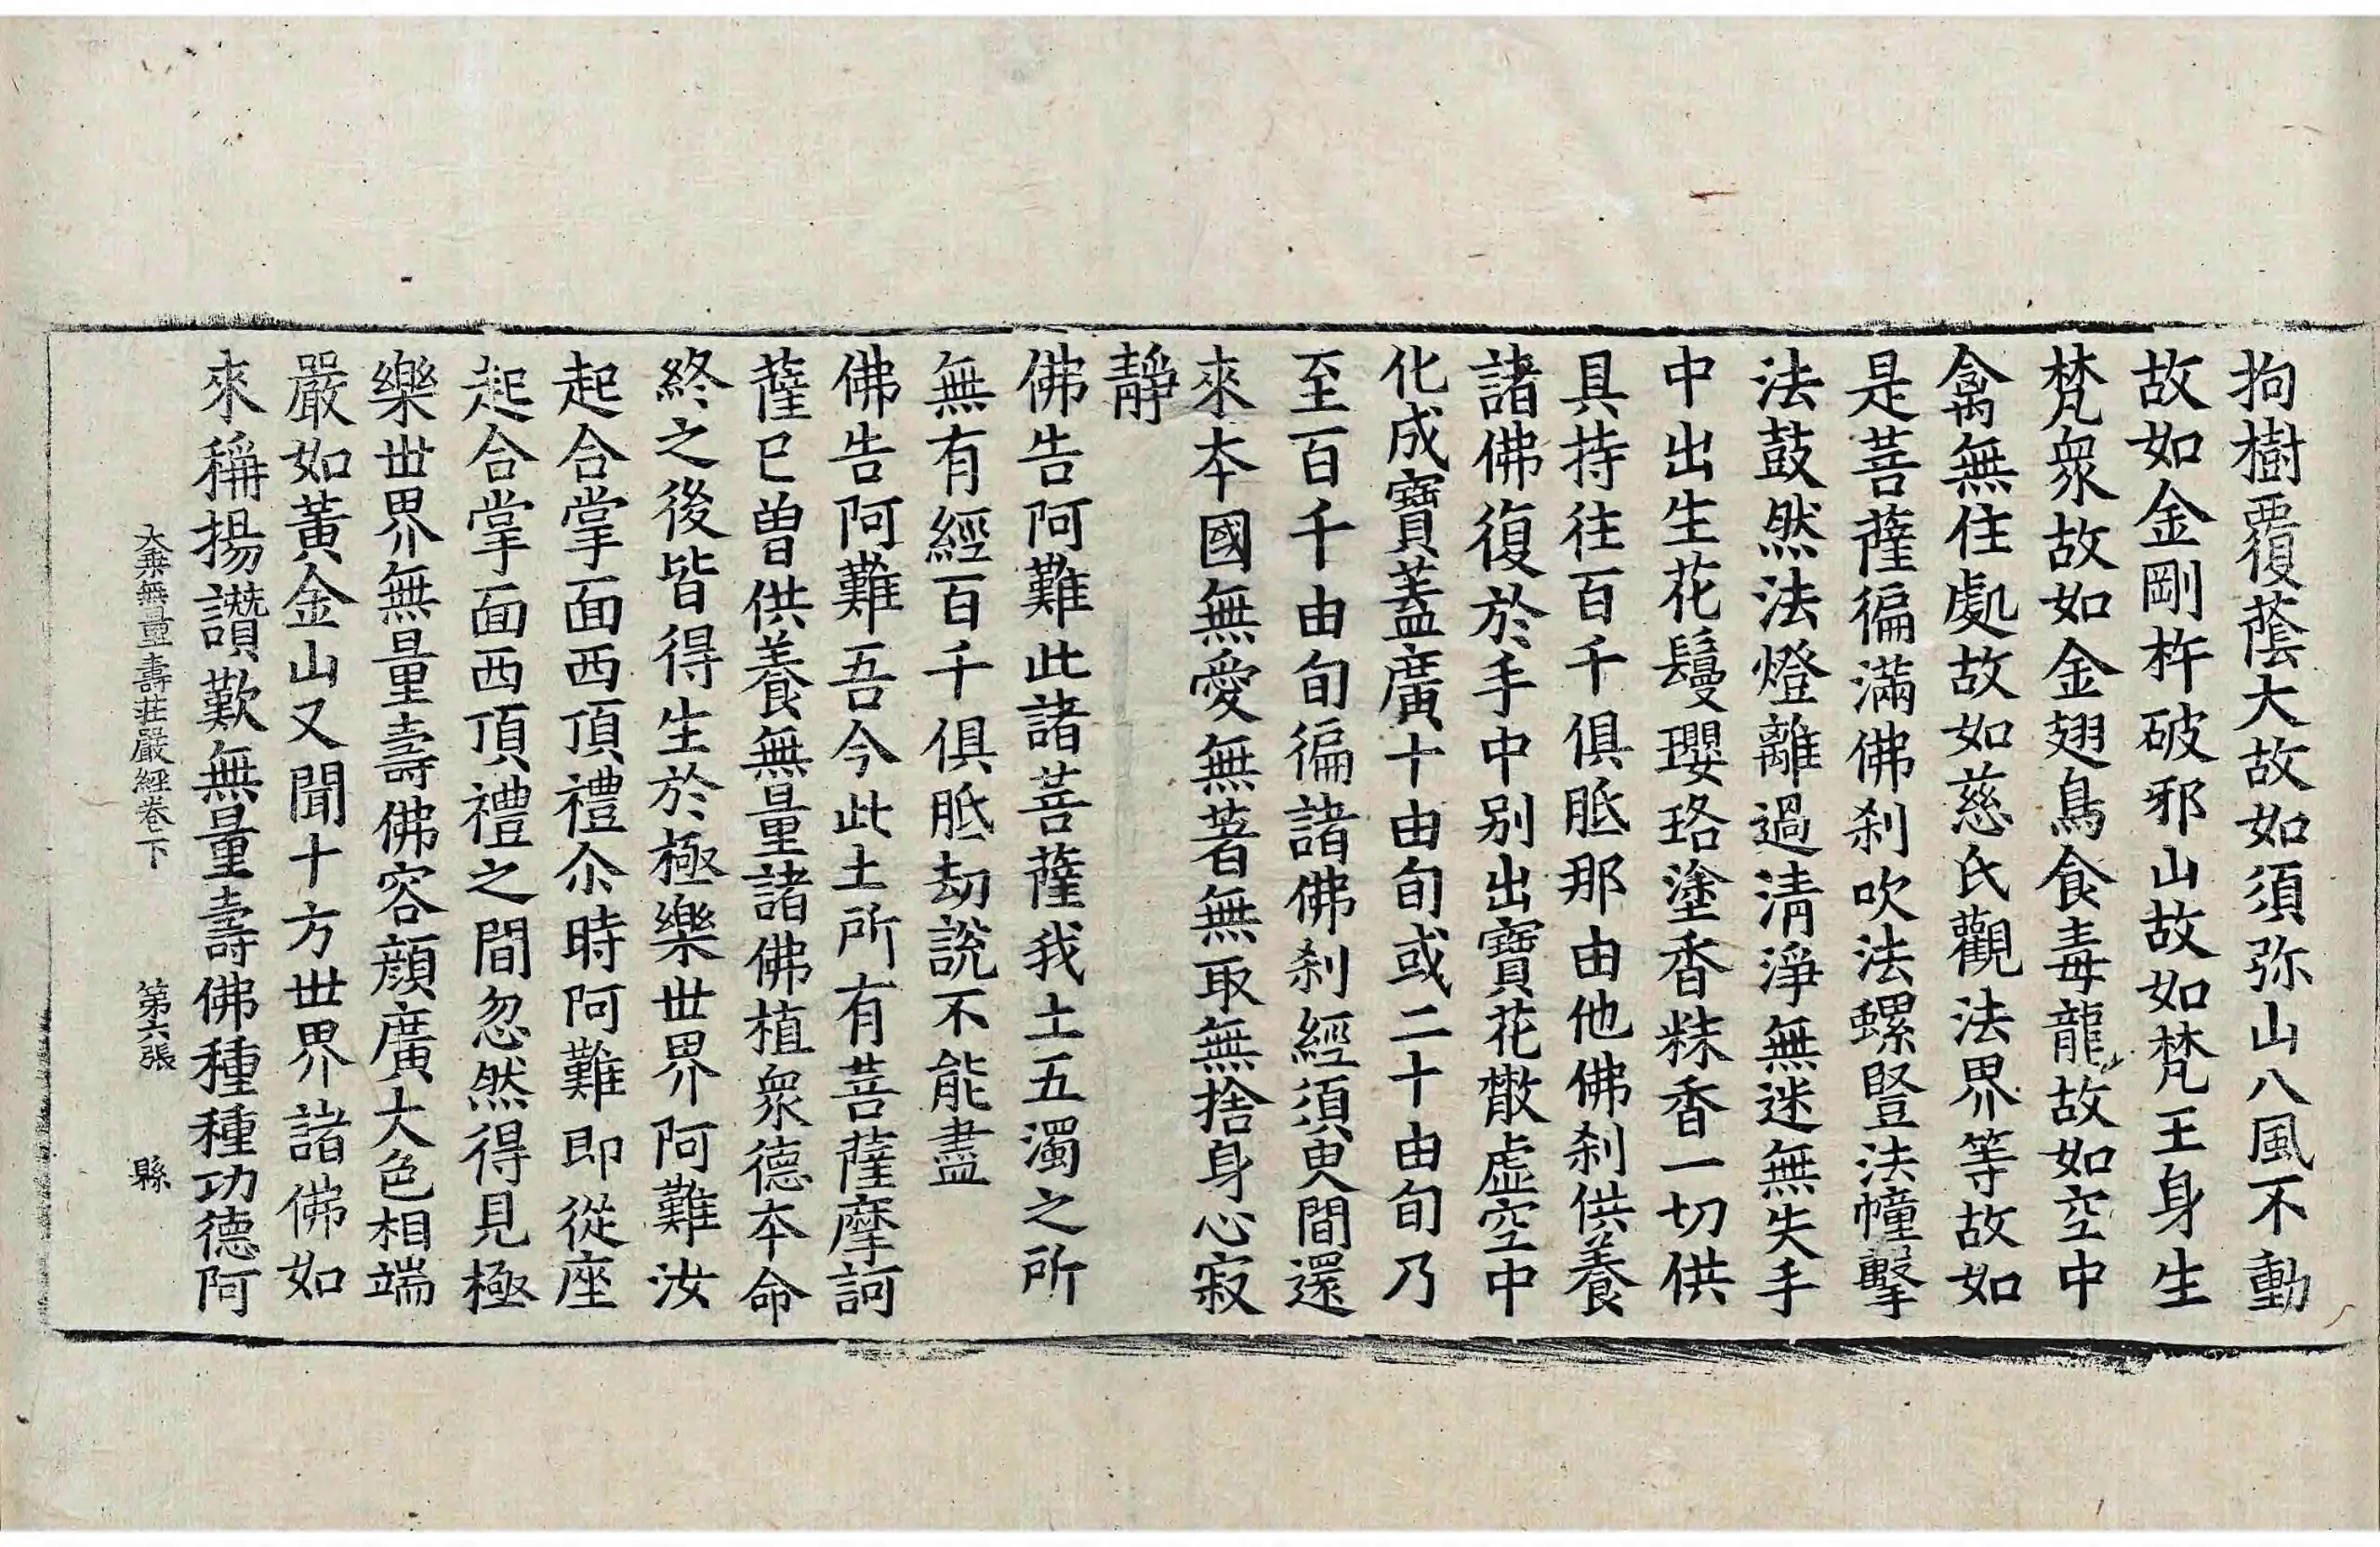 拘樹覆蔭大故如須弥山八風不動
故如金剛杵破邪山故如梵王身生
梵衆故如金翅鳥食毒龍故如空中
禽無住處故如慈氏觀法界等故如
是菩薩徧滿佛刹吹法螺豎法幢擊
法鼓然法燈離過清淨無迷無失手
中出生花鬘瓔珞塗香粖香一切供
具持往百千俱胝那由他佛刹供養
諸佛復於手中別出寶花散虛空中
化成寶蓋廣十由旬或二十由旬乃
至百千由旬徧諸佛刹經須臾間還
來本國無愛無著無取無捨身心寂
靜
佛告阿難此諸菩薩我土五濁之所
無有經百千俱胝劫說不能盡
佛告阿難吾今此土所有菩薩摩訶
薩已曾供養無量諸佛植衆德本命
終之後皆得生於極樂世界阿難汝
起合掌面西頂禮尒時阿難即從座
起合掌面西頂禮之間忽然得見極
樂世界無量壽佛容顔廣大色相端
嚴如黃金山又聞十方世界諸佛如
來稱揚讚歎無量壽佛種種功德阿
大乘無量壽莊嚴經卷下 第六張 縣